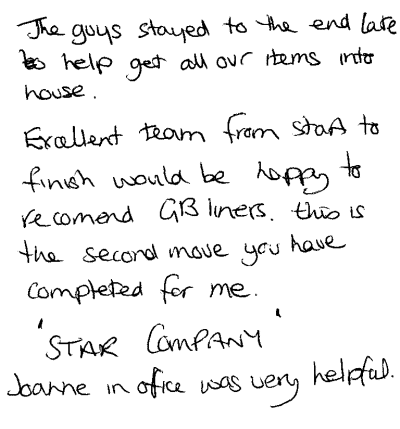 The guys stayed to the end late
to help get all our items into
house.
Excellent team from start to
finish would be happy to
recomend GB liners. this is
the second move you have
completed for me.
'STAR COMPANY'
Joanne in office was very helpful.